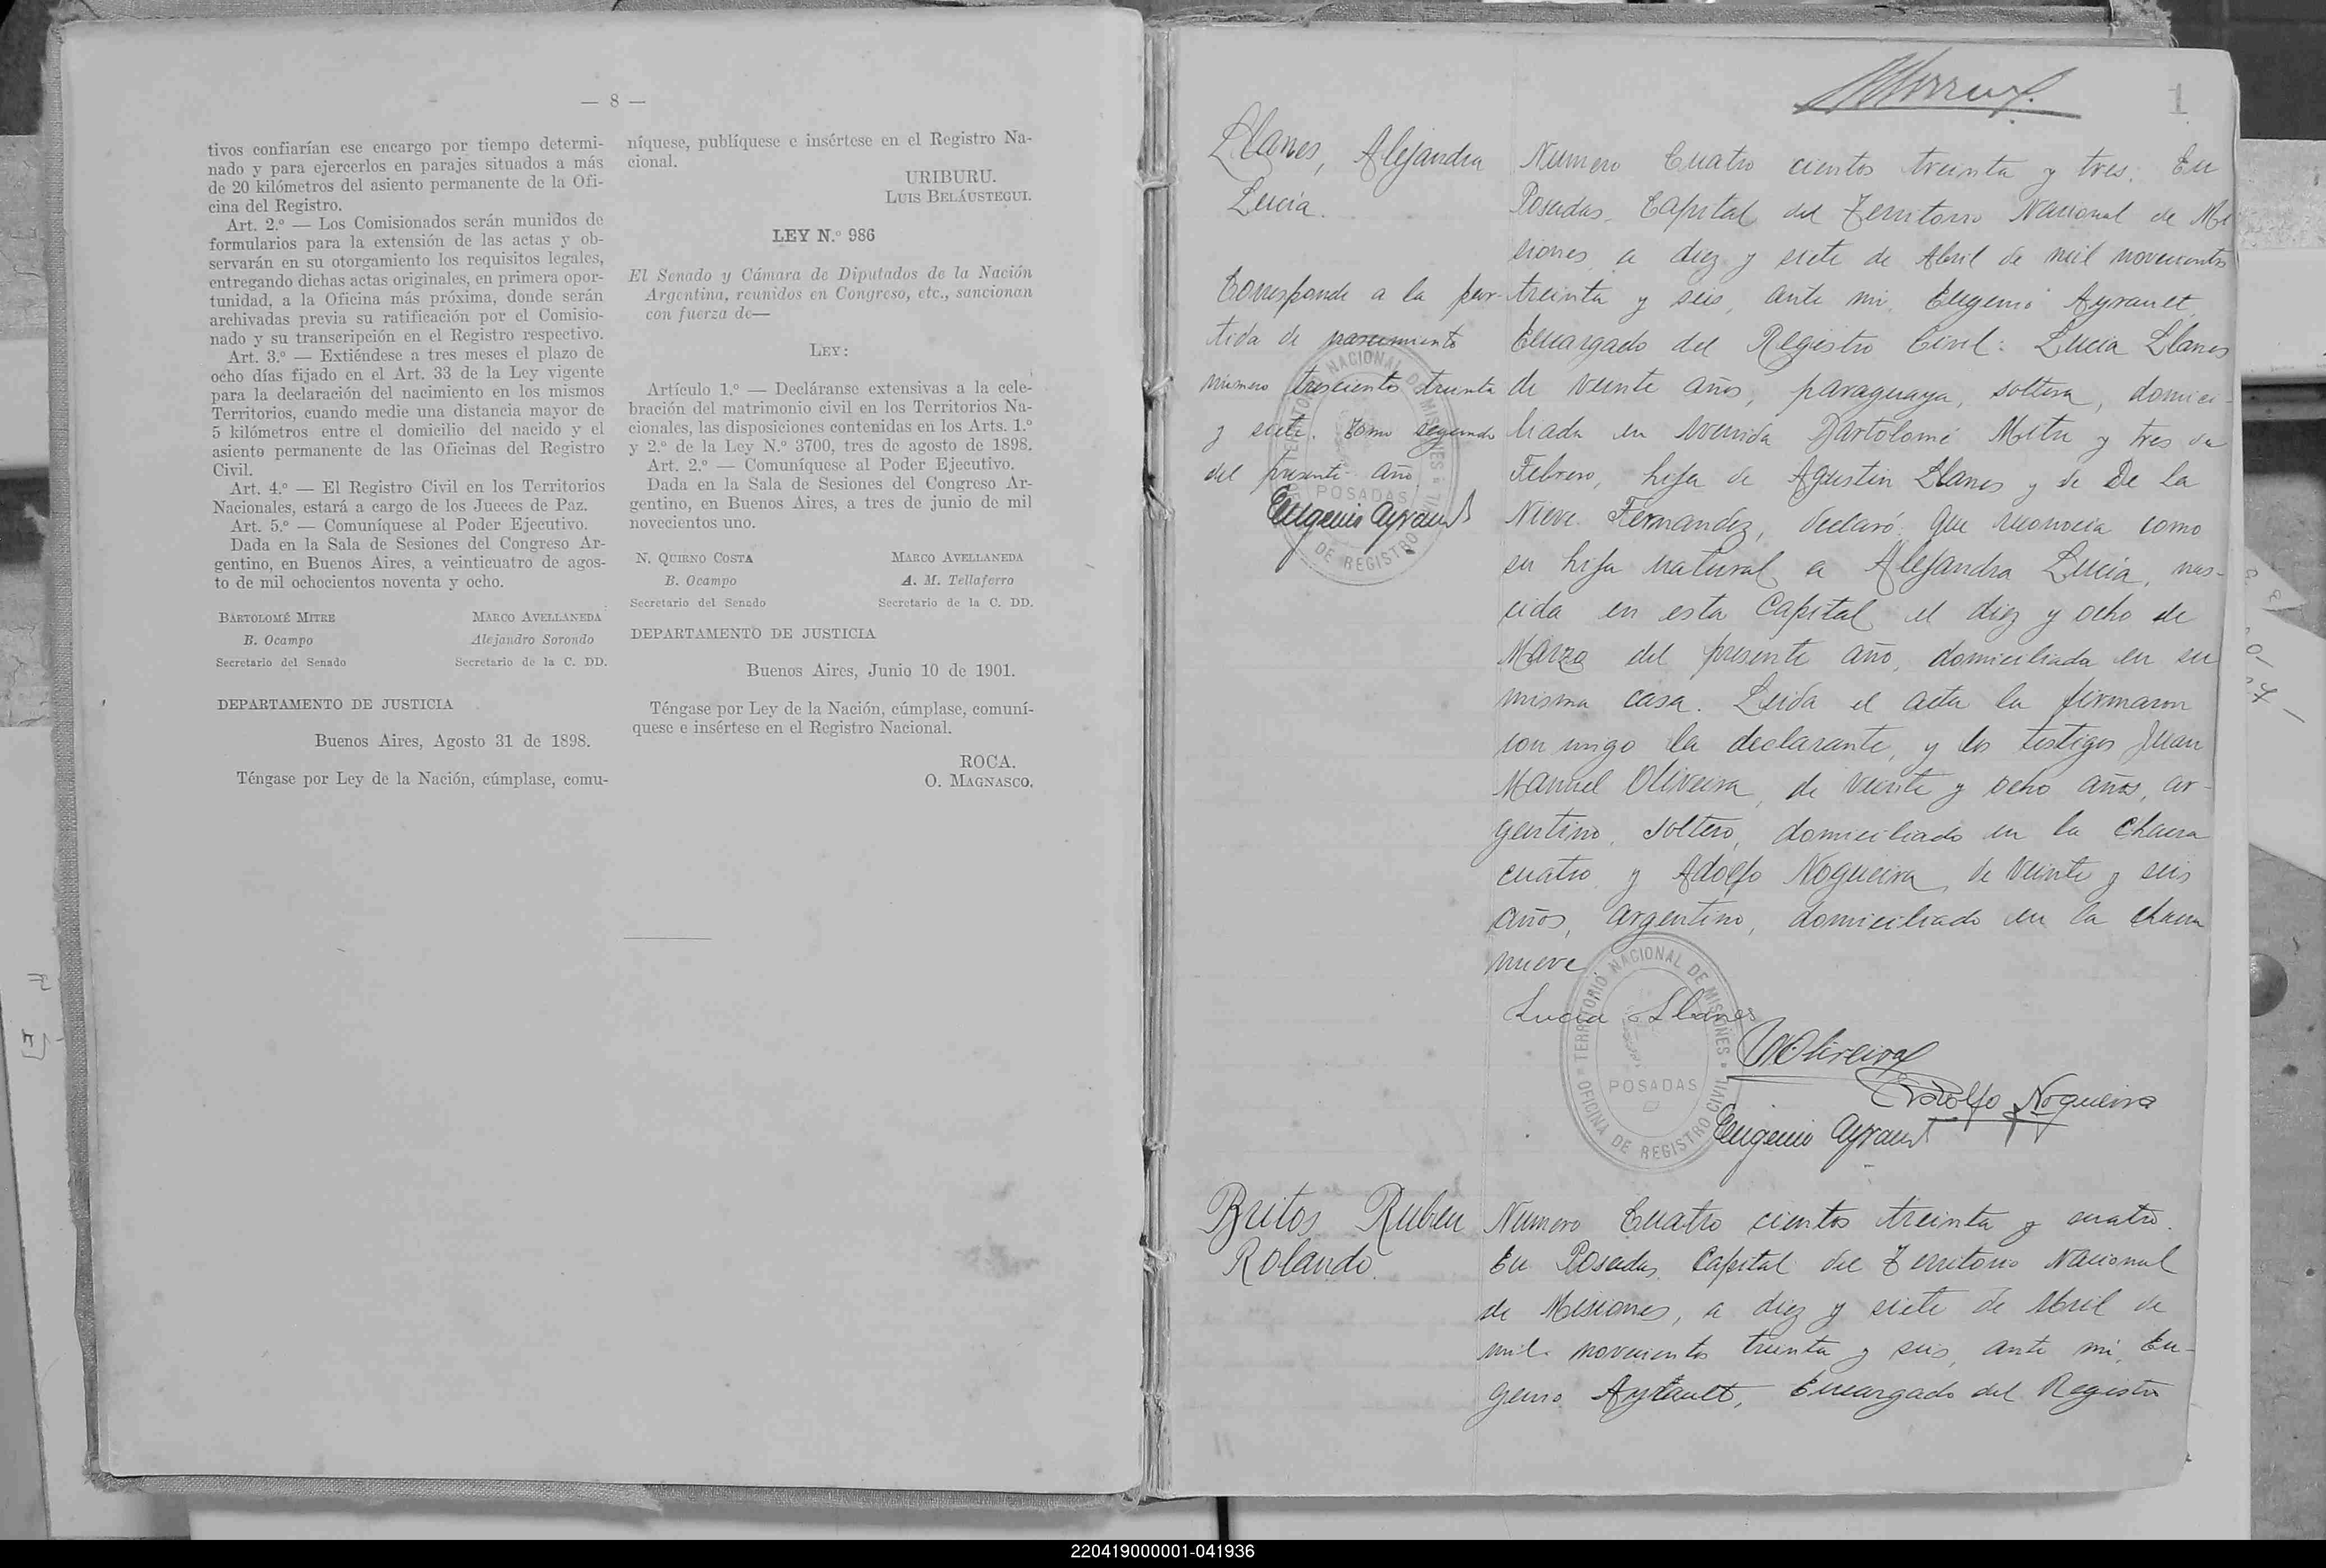 — 8 —
tivos confiarían ese encargo por tiempo determi-
nado y para ejercerlos en parajes situados a más
de 20 kilómetros del asiento permanente de la Ofi-
cina del Registro.
Art. 2.º — Los Comisionados serán munidos de
formularios para la extensión de las actas y ob-
servarán en su otorgamiento los requisitos legales,
entregando dichas actas originales, en primera opor-
tunidad, a la Oficina más próxima, donde serán
archivadas previa su ratificación por el Comisio-
nado y su transcripción en el Registro respectivo.
Art. 3.º — Extiéndese a tres meses el plazo de
ocho días fijado en el Art. 33 de la Ley vigente
para la declaración del nacimiento en los mismos
Territorios, cuando medie una distancia mayor de
5 kilómetros entre el domicilio del nacido y el
asiento permanente de las Oficinas del Registro
Civil.
Art. 4.º — El Registro Civil en los Territorios
Nacionales, estará a cargo de los Jueces de Paz.
Art. 5.º — Comuníquese al Poder Ejecutivo.
Dada en la Sala de Sesiones del Congreso Ar-
gentino, en Buenos Aires, a veinticuatro de agos-
to de mil ochocientos noventa y ocho.
BARTOLOMÉ MITRE MARCO AVELLANEDA
B. Ocampo Alejandro Sorondo
Secretario del Senado Secretario de la C. DD.
DEPARTAMENTO DE JUSTICIA
Buenos Aires, Agosto 31 de 1898.
Téngase por Ley de la Nación, cúmplase, comu-
níquese, publíquese e insértese en el Registro Na-
cional.
URIBURU.
LUIS BELÁUSTEGUI.
LEY N.º 986
El Senado y Cámara de Diputados de la Nación
Argentina, reunidos en Congreso, etc., sancionan
con fuerza de—
LEY:
Artículo 1.º — Decláranse extensivas a la cele-
bración del matrimonio civil en los Territorios Na-
cionales, las disposiciones contenidas en los Arts. 1.º
y 2.º de la Ley N.º 3700, tres de agosto de 1898.
Art. 2.º — Comuníquese al Poder Ejecutivo.
Dada en la Sala de Sesiones del Congreso Ar-
gentino, en Buenos Aires, a tres de junio de mil
novecientos uno.
N. QUIRNO COSTA MARCO AVELLANEDA
B. Ocampo A. M. Tellaferro
Secretario del Senado Secretario de la C. DD.
DEPARTAMENTO DE JUSTICIA
Buenos Aires, Junio 10 de 1901.
Téngase por Ley de la Nación, cúmplase, comuní-
quese e insértese en el Registro Nacional.
ROCA.
O. MAGNASCO.
1
Llanes, Alejandra
Lucía.
Corresponde a la par-
tida de nacimiento
número trescientos treinta
y siete. Tomo segundo
del presente año
Eugenio Ayrault
TERRITORIO NACIONAL DE MISIONES
POSADAS
OFICINA DE REGISTRO CIVIL
Numero Cuatro cientos treinta y tres. En
Posadas, Capital del Territorio Nacional de Mi
siones, a diez y siete de Abril de mil novecientos
treinta y seis, ante mi, Eugenio Ayrault,
Encargado del Registro Civil: Lucía Llanes
de veinte años, paraguaya, soltera, domici-
liada en Avenida Bartolomé Mitre y tres de
Febrero, hija de Agustin Llanes y de De la
Nieve Fernandez, declaró: Que reconocia como
su hija natural a Alejandra Lucía, nas-
cida en esta Capital el diez y ocho de
Marzo del presente año, domiciliada en su
misma casa. Leida el acta la firmaron
con migo la declarante, y los testigos Juan
Manuel Oliveira, de veinte y ocho años, ar-
gentino, soltero, domiciliado en la chacra
cuatro y Adolfo Nogueira, de veinte y seis
años, argentino, domiciliado en la chacra
nueve.
Lucia Llanes
TERRITORIO NACIONAL DE MISIONES
POSADAS
OFICINA DE REGISTRO CIVIL
Oliveira
Adolfo Nogueira
Eugenio Ayrault
Britos Ruben
Rolando.
Numero Cuatro cientos treinta y cuatro.
En Posadas, Capital del Territorio Nacional
de Misiones, a diez y siete de Abril de
mil novecientos treinta y seis, ante mi, Eu-
genio Ayrault, Encargado del Registro
220419000001-041936